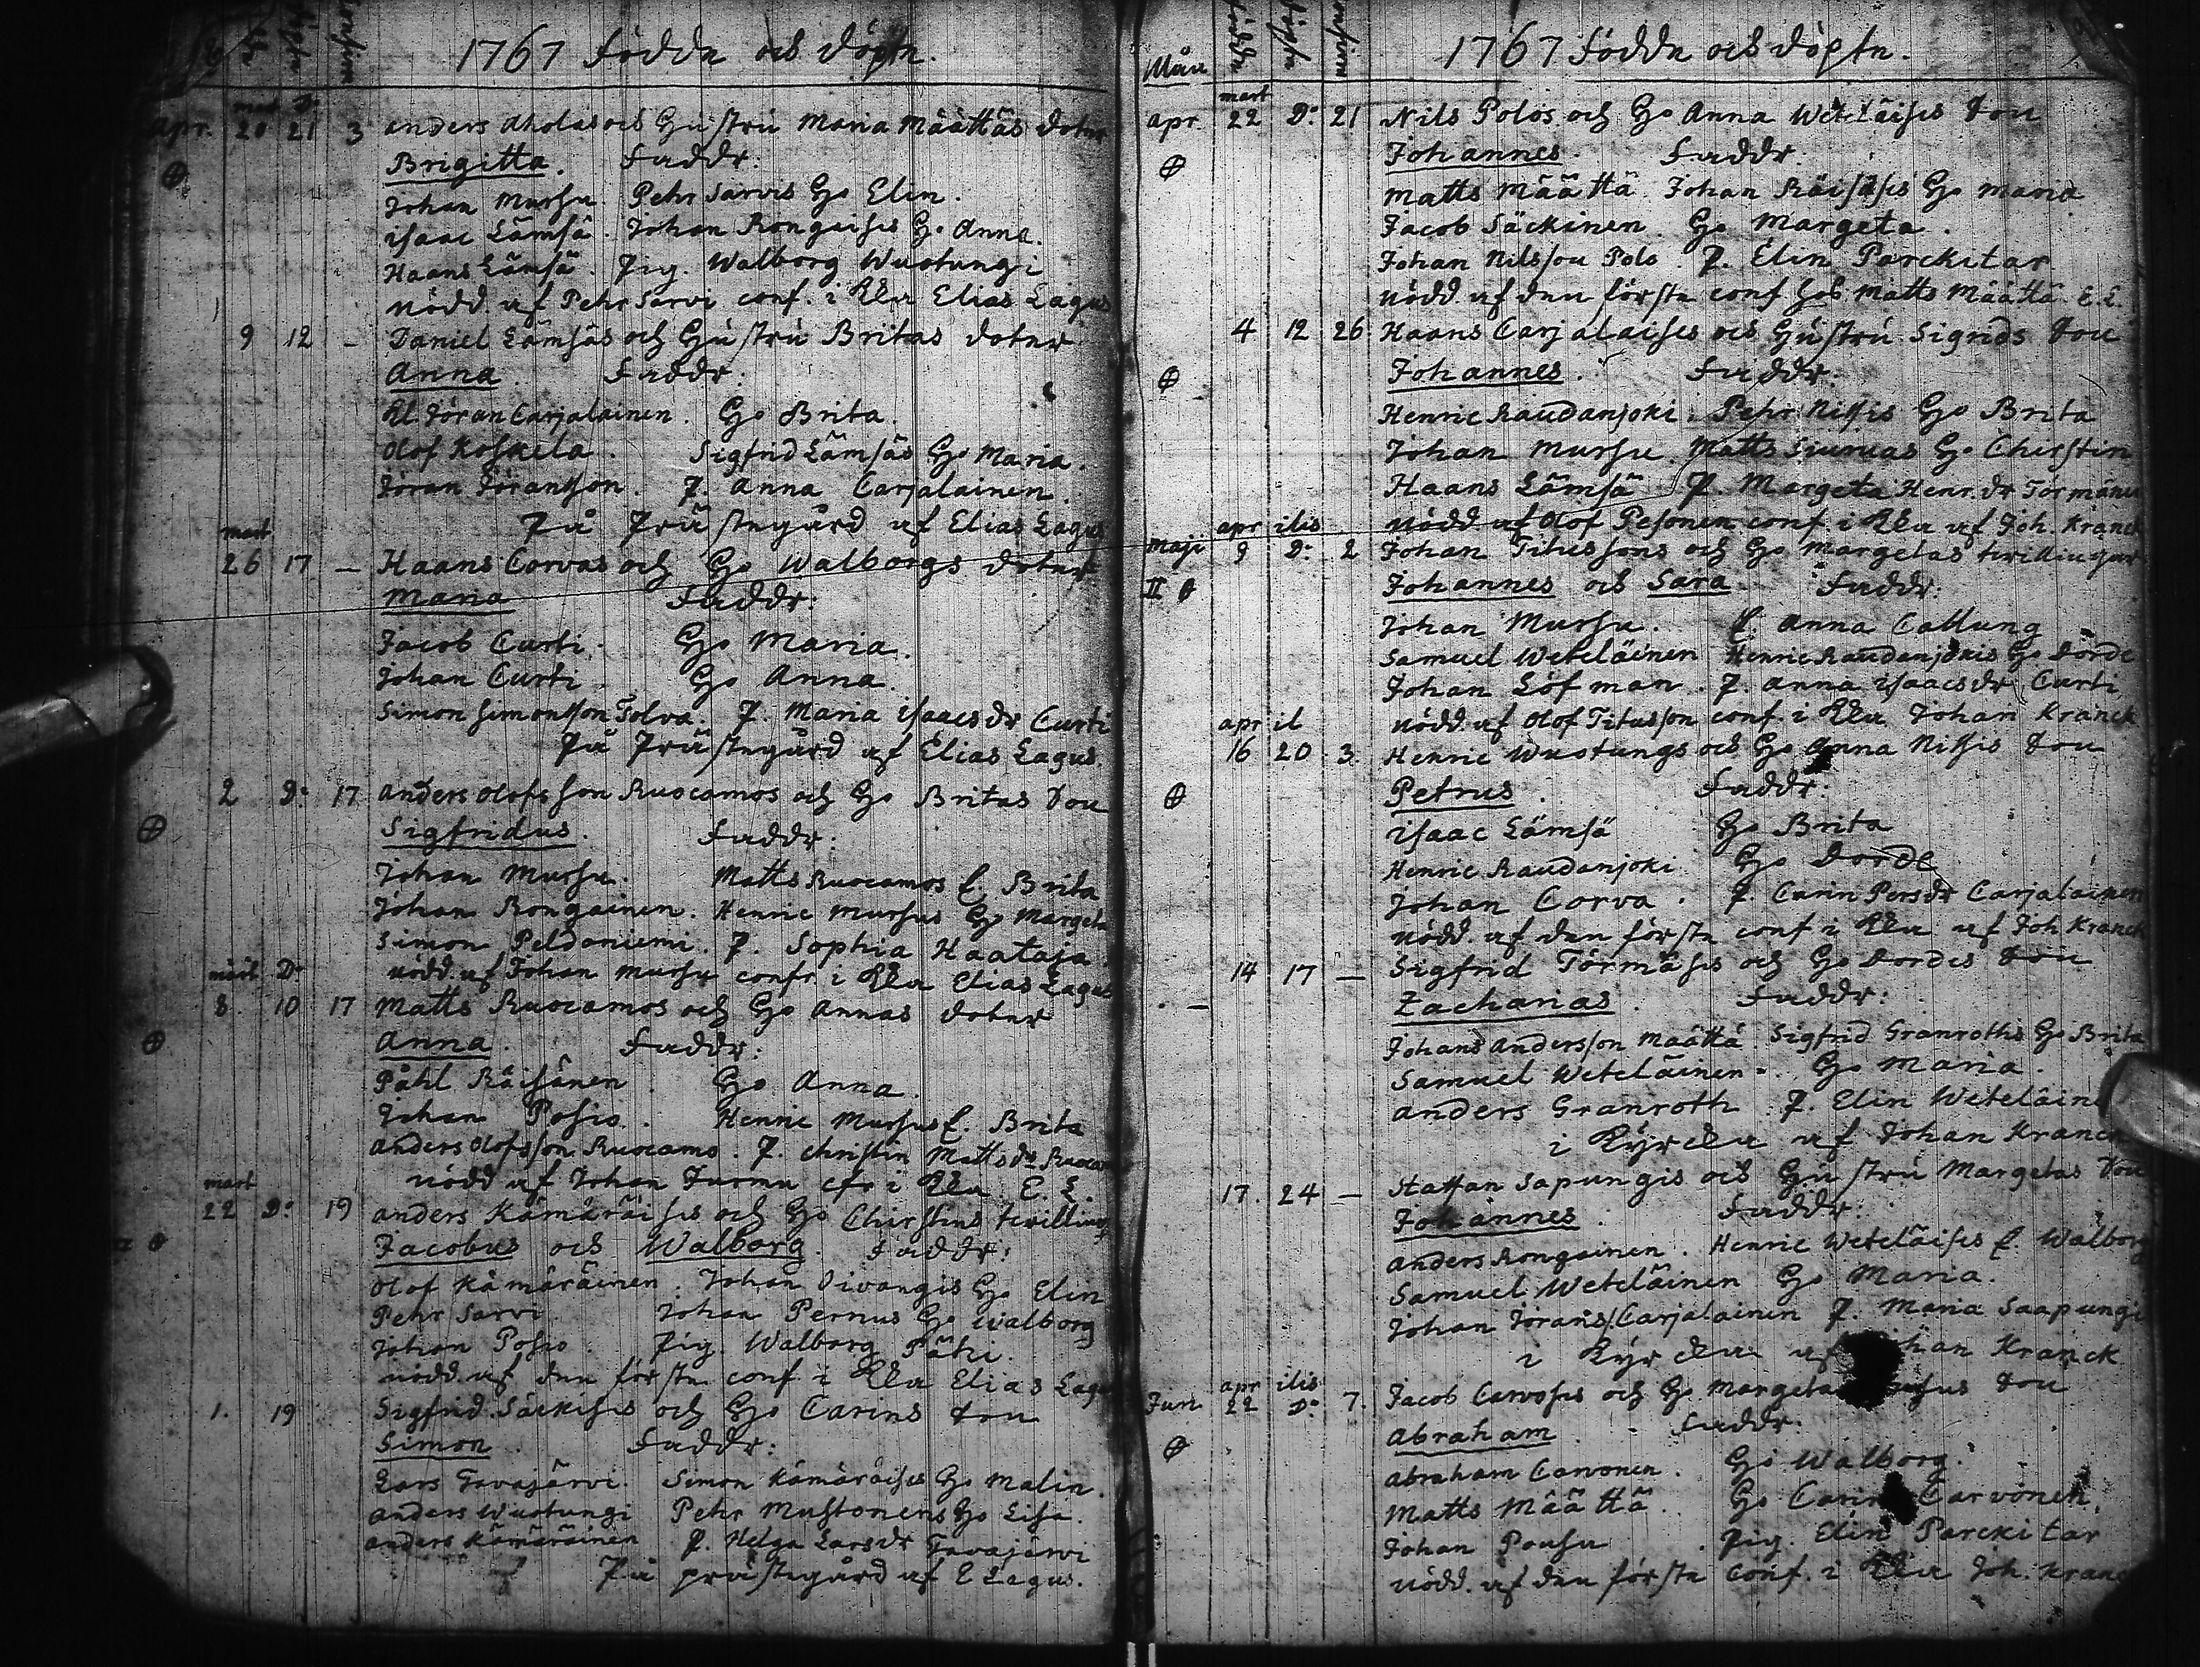 1767 födde och döpte.
mart D:
Apr. 20 21 3 Anders Aholas och Hustru Maria Määttäs doter
Brigitta. Faddr:
Johan Mursu Pehr Sarvis Ho Elin.
Isaac Lämsä. Johan Rongaises Ho Anna.
Haans Lämsä. Pig. Walborg Wuotungi
nödd. af Pehr Sarvi conf. i Kka Elias Lagus
9 12 – Daniel Lämsäs och Hustru Britas doter
Anna. Faddr:
Kl. Jöran Carjalainen. Ho Brita.
Olof Koskela. Sigfrid Lämsäs Ho Maria.
Jöran Jöransson. P. Anna Carjalainen.
På Prästegård af Elias Lagus
mart
26 17 – Haans Corvas och Ho Walborgs doter
Maria Faddr:
Jacob Curti. Ho Maria.
Johan Curti. Ho Anna.
Simon Simonsson Tolva. P. Maria Isaacsdr Curti
På Prästegård af Elias Lagus.
2 D: 17 Anders Olofsson Ruocamos och Ho Britas Son
Sigfridus. Faddr:
Johan Mursu. Matts Ruocamos E. Brita
Johan Rongainen. Henric Mursus Ho Margeta
Simon Peldoniemi. P. Sophia Haataja.
nödd. af Johan Mursu confr. i Kka Elias Lagus
mart. D:
8. 10 17 Matts Ruocamos och Ho Annas doter
Anna. Faddr:
Påhl Räisänen. Ho Anna.
Johan Posio. Henric Mursus E. Brita
Anders Olofsson Ruocamo. P. Christin Mattsdr
nödd af Johan Jurmu cfr i Kka E. L.
mart
22 D: 19 Anders Kämäräises och Ho Chirstins twilling
Jacobus och Walborg. Faddr:
Olof Kämäräinen. Johan Oivangis Ho Elin
Pehr Sarvi. Johan Pernus Ho Walborg
Johan Posio. Pig. Walborg Pätsi.
nödd. af den förste conf. i Kka Elias Lagus
1. 19 Sigfrid Säckises och Ho Carins Son
Simon. Faddr:
Lars Tavajärvi. Simon Kämäräises Ho Malin.
Anders Wuotungi Pehr Mustonens Ho Lisa.
Anders Kämäräinen P. Helga Larsdr Tavajärvi
På prästegård af E Lagus.
1767 födde och döpte.
Mån
mart
apr 22 D: 21 Nils Polos och Ho Anna Weteläises Son
Johannes. Faddr.
Matts Määttä Johan Räisäses Ho Maria
Jacob Säckinen Ho Margeta.
Johan Nilsson Polo. P. Elin Parckitar
nödd. af den förste conf Matts Määttä. E. L.
4 12 26 Haans Carjalaises och Hustru Sigrids Son
Johannes. Faddr.
Henric Raudanjoki. Pehr Nissis Ho Brita
Johan Mursu. Matts Siuruas Ho Chirstin
Haans Lämsä P. Margeta Henr.dr Törmänen
apr ilis nödd af Olof Pesonen conf. i Kka af Joh. Kranck
Maji 9 D: 2 Johan Titussons och Ho Margetas twillingar
Johannes och Sara Faddr:
Johan Mursu. E. Anna Callung
Samuel Weteläinen Henric Raudanjokis Ho Dorde
Johan Löfman. P. Anna Isaacsdr Curti
apr il nödd af Olof Titusson conf. i Kka Johan Kranck
16 20 3. Henric Wuotungs och Ho Anna Nissis Son
Petrus. Faddr:
Isaac Lämsä Ho Brita
Henric Raudanjoki Ho Dorde
Johan Corva. P. Carin Persdr Carjalainen
nödd. af den förste conf i Kka af Joh Kranck
14 17 – Sigfrid Törmäses och Ho Dordes Son
Zacharias. Faddr:
Johans Andersson Määttä Sigfrid Granroths Ho Brita
Samuel Weteläinen. Ho Maria.
Anders Granroth P. Elin Weteläin
i Kyrckan af Johan Kranck
17. 24 – Staffan Sapungis och Hustru Margetas Son
Johannes. Faddr:
Anders Rongainen. Henric Weteläises E. Walborg
Samuel Weteläinen Ho Maria.
Johan Jöranss Carjalainen P. Maria Saapungi
i Kyrckan af Johan Kranck
apr ilis
Juni 22 D: 7. Jacob Carvoses och Ho Margeta Son
Abraham. Faddr.
Abraham Carvonen. Ho Walborg.
Matts Määttä. Ho Carin Carvonen.
Johan Pousu. Pig. Elin Parckitar
nödd. af den förste conf. i Kka Joh. Kranc